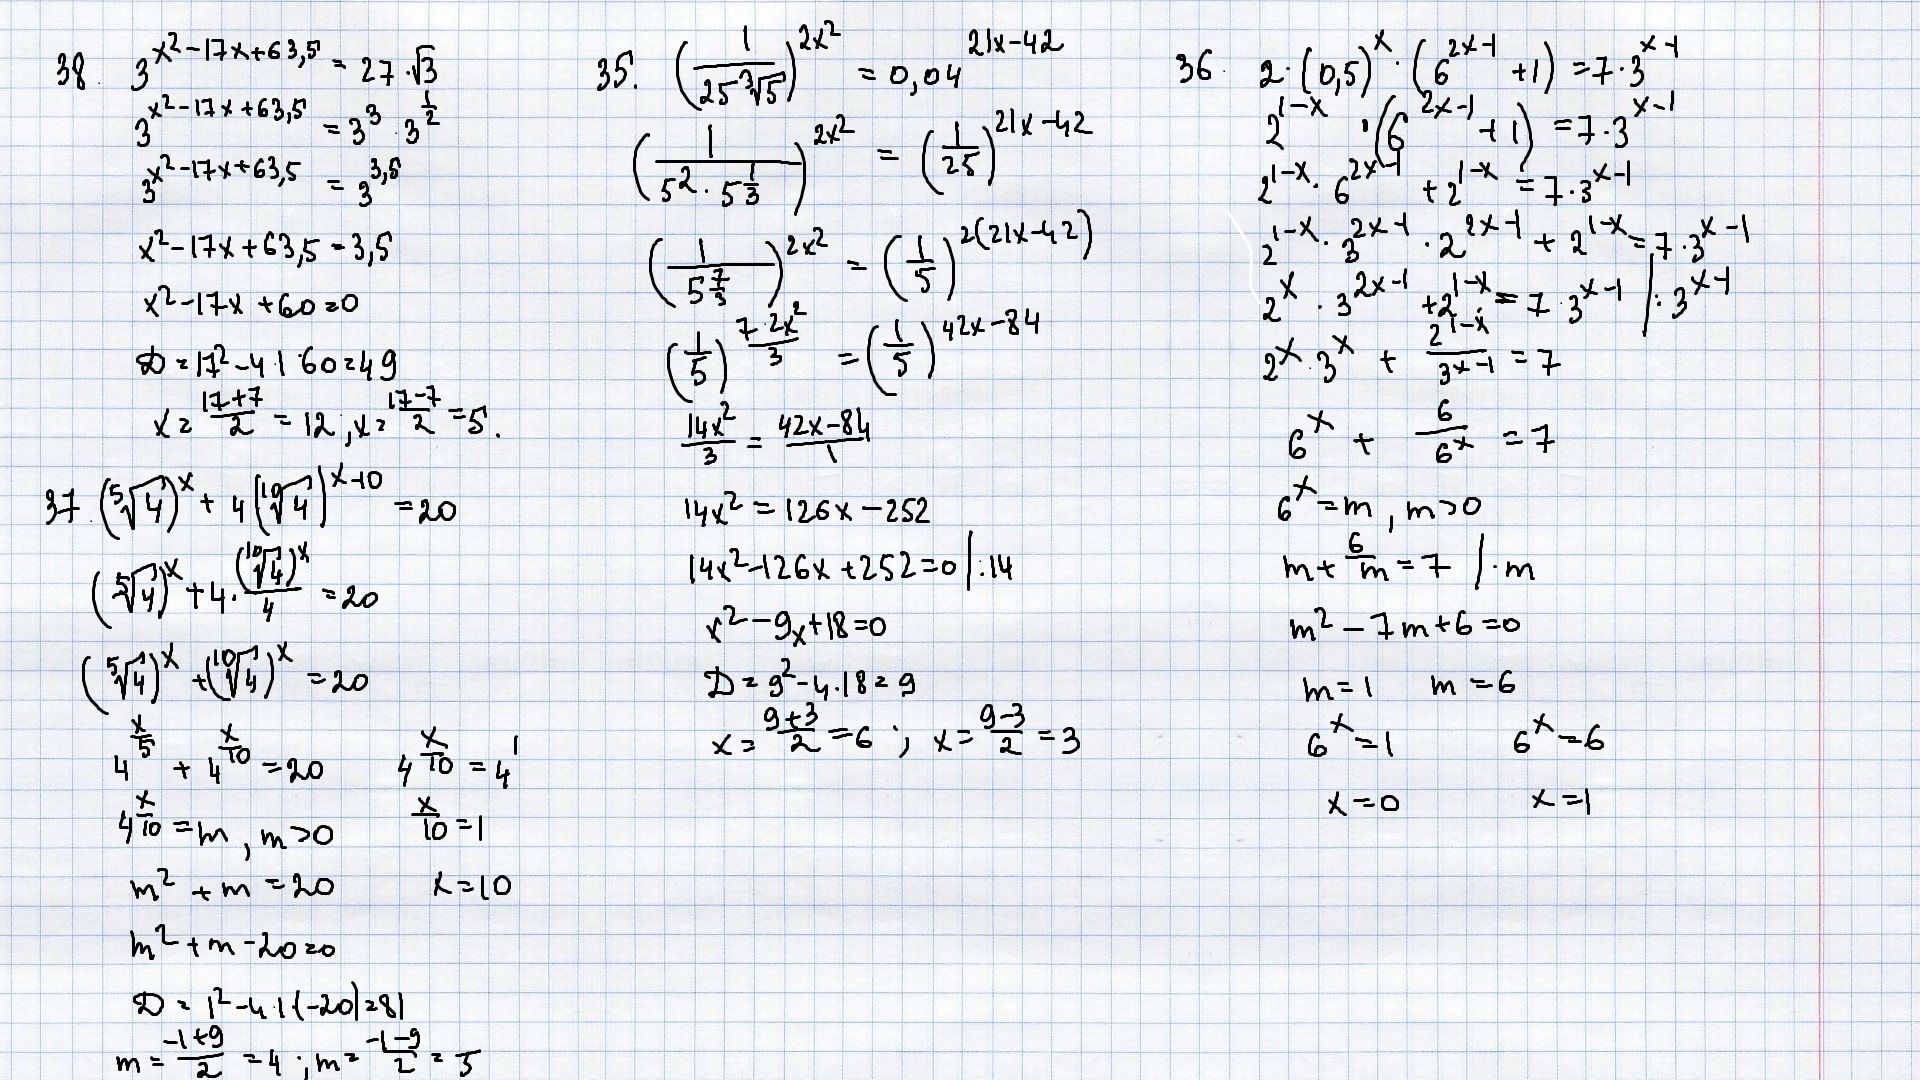 38. 3^(x²-17x+63,5) = 27·√3
3^(x²-17x+63,5) = 3³·3^(1/2)
3^(x²-17x+63,5) = 3^(3,5)
x²-17x+63,5=3,5
x²-17x+60=0
D=17²-4·1·60=49
x=(17+7)/2=12, x=(17-7)/2=5.
37. (⁵√4)^x + 4(¹⁰√4)^(x-10) = 20
(⁵√4)^x + 4·(¹⁰√4)^x/4 = 20
(⁵√4)^x + (¹⁰√4)^x = 20
4^(x/5) + 4^(x/10) = 20
4^(x/10) = m, m>0
m² + m = 20
m² + m - 20 = 0
D = 1²-4·1(-20)=81
m = (-1+9)/2 = 4; m = (-1-9)/2 = 5
4^(x/10) = 4¹
x/10 = 1
x=10
35. (1/(25∛5))^(2x²) = 0,04^(21x-42)
(1/(5²·5^(1/3)))^(2x²) = (1/25)^(21x-42)
(1/5^(7/3))^(2x²) = (1/5)^(2(21x-42))
(1/5)^(7·2x²/3) = (1/5)^(42x-84)
14x²/3 = (42x-84)/1
14x² = 126x-252
14x²-126x+252=0 |:14
x²-9x+18=0
D=9²-4·18=9
x=(9+3)/2=6; x=(9-3)/2=3
36. 2·(0,5)^x·(6^(2x-1)+1)=7·3^(x-1)
2^(1-x)·(6^(2x-1)+1)=7·3^(x-1)
2^(1-x)·6^(2x-1)+2^(1-x)=7·3^(x-1)
2^(1-x)·3^(2x-1)·2^(2x-1)+2^(1-x)=7·3^(x-1)
2^x·3^(2x-1)+2^(1-x)=7·3^(x-1) |:3^(x-1)
2^x·3^x + 2^(1-x)/3^(x-1) = 7
6^x + 6/6^x = 7
6^x=m, m>0
m+6/m=7 |·m
m²-7m+6=0
m=1 m=6
6^x=1 6^x=6
x=0 x=1